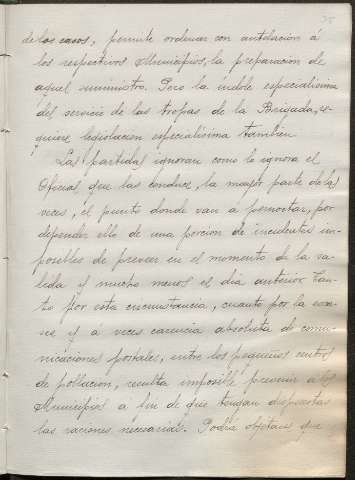 35
de los casos, permite ordenar con antelación á
los respectivos Municipios, la preparación de
aquel suministro. Pero la índole especialísima
del servicio de las tropas de la Brigada, re-
quiere legislación especialísima también.
Las partidas ignoran como lo ignora el
Oficial que las conduce, la mayor parte de las
veces, el punto donde van á pernoctar, por
depender ello de una porción de incidentes im-
posibles de preveer en el momento de la sa-
lida y mucho menos el dia anterior. Tan-
to por esta circunstancia, cuanto por la
y á veces carencia absoluta de comu-
nicaciones postales, entre los pequeños centros
de población, resulta imposible prevenir á los
Municipios á fin de que tengan dispuestas
las raciones necesarias. Podrá objetarse que